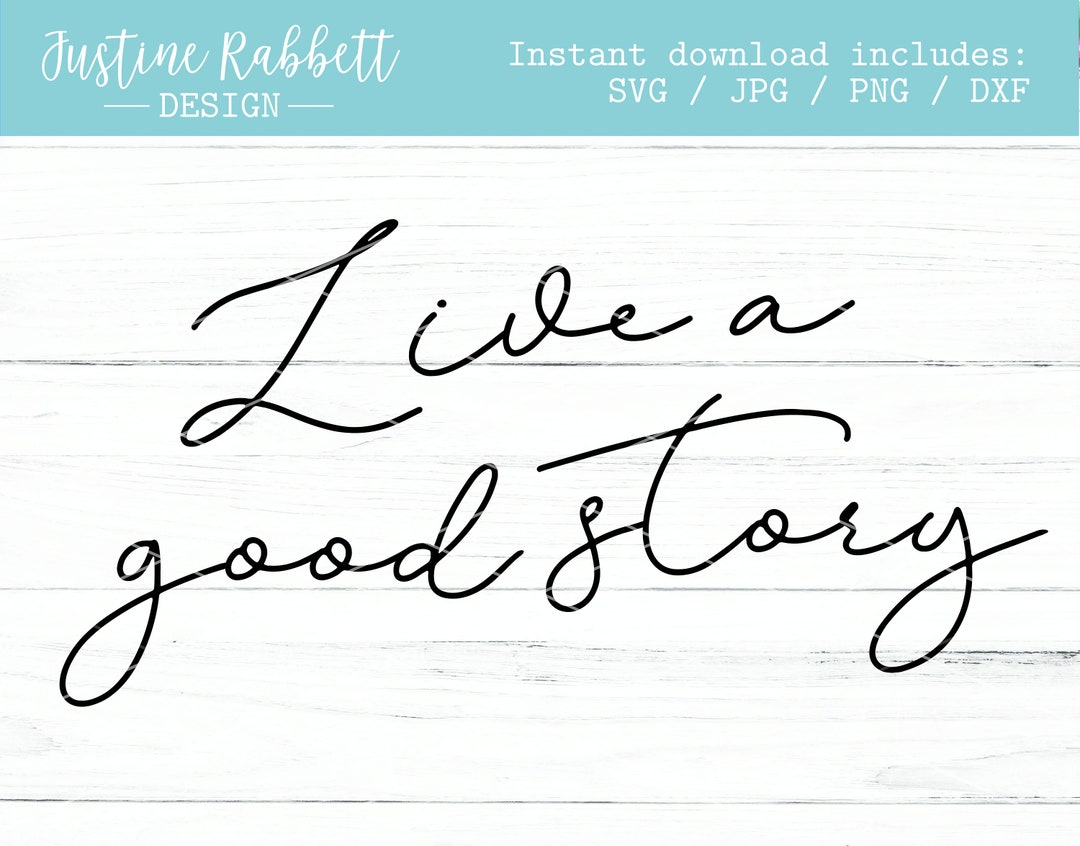 Justine Rabbett
DESIGN
Instant download includes:
SVG / JPG / PNG / DXF
Live a
good story